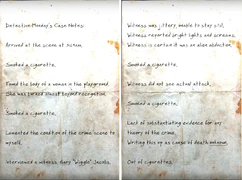 Detective Monday's Case Notes
Arrived at the scene at
Smoked a cigarette.
Found the body of a woman in the playground.
She was burned almost beyond recognition.
Smoked a cigarette.
Lamented the condition of the crime scene to
myself.
Interviewed a witness, Gary "Wiggle" Jacobs.
Witness was jittery, unable to stay still.
Witness reported bright lights and screams.
Witness is certain it was an alien abduction.
Smoked a cigarette.
Witness did not see actual attack.
Smoked a cigarette.
Lack of substantiating evidence for any
theory of the crime.
Writing this up as cause of death unknown.
Out of cigarettes.